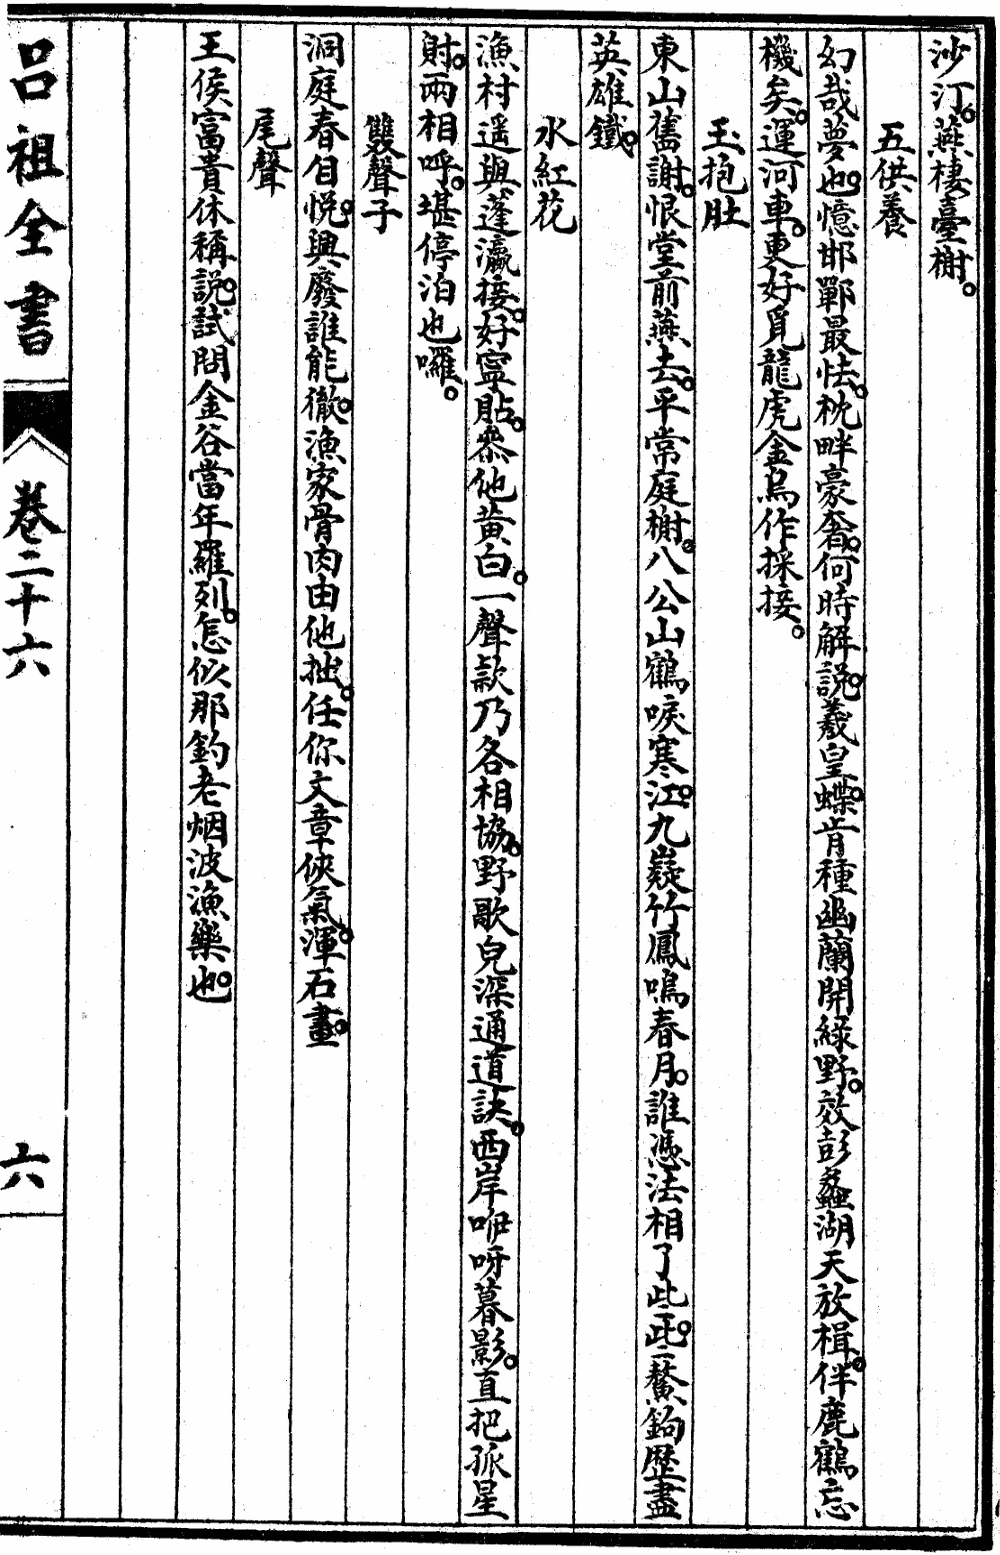 沙汀。燕棲臺榭。
五供養
幻哉夢也。憶邯鄲最怯。枕畔豪奢。何時解說。羲皇蝶。肯種幽蘭開綠野。效彭蠡湖天放楫。伴鹿鶴忘
機矣。運河車。更好覓龍虎金烏作採接。
玉抱肚
東山舊謝。恨堂前燕去。平常庭榭。八公山鶴唳寒江。九嶷竹鳳鳴春月。誰憑法相了此此。三鰲鉤歷盡
英雄鐵。
水紅花
漁村遥與蓬瀛接。好寧貼。叅他黃白。一聲欵乃各相協。野歌兒深通道訣。西岸咿呀暮影。直把孤星
射。兩相呼。堪停泊也囉。
雙聲子
洞庭春自悅。興廢誰能徹。漁家骨肉由他拙。任你文章俠氣。渾石畫。
尾聲
王侯富貴休稱說。試問金谷當年羅列。怎似那釣老烟波漁樂也。
呂祖全書
卷二十六
六